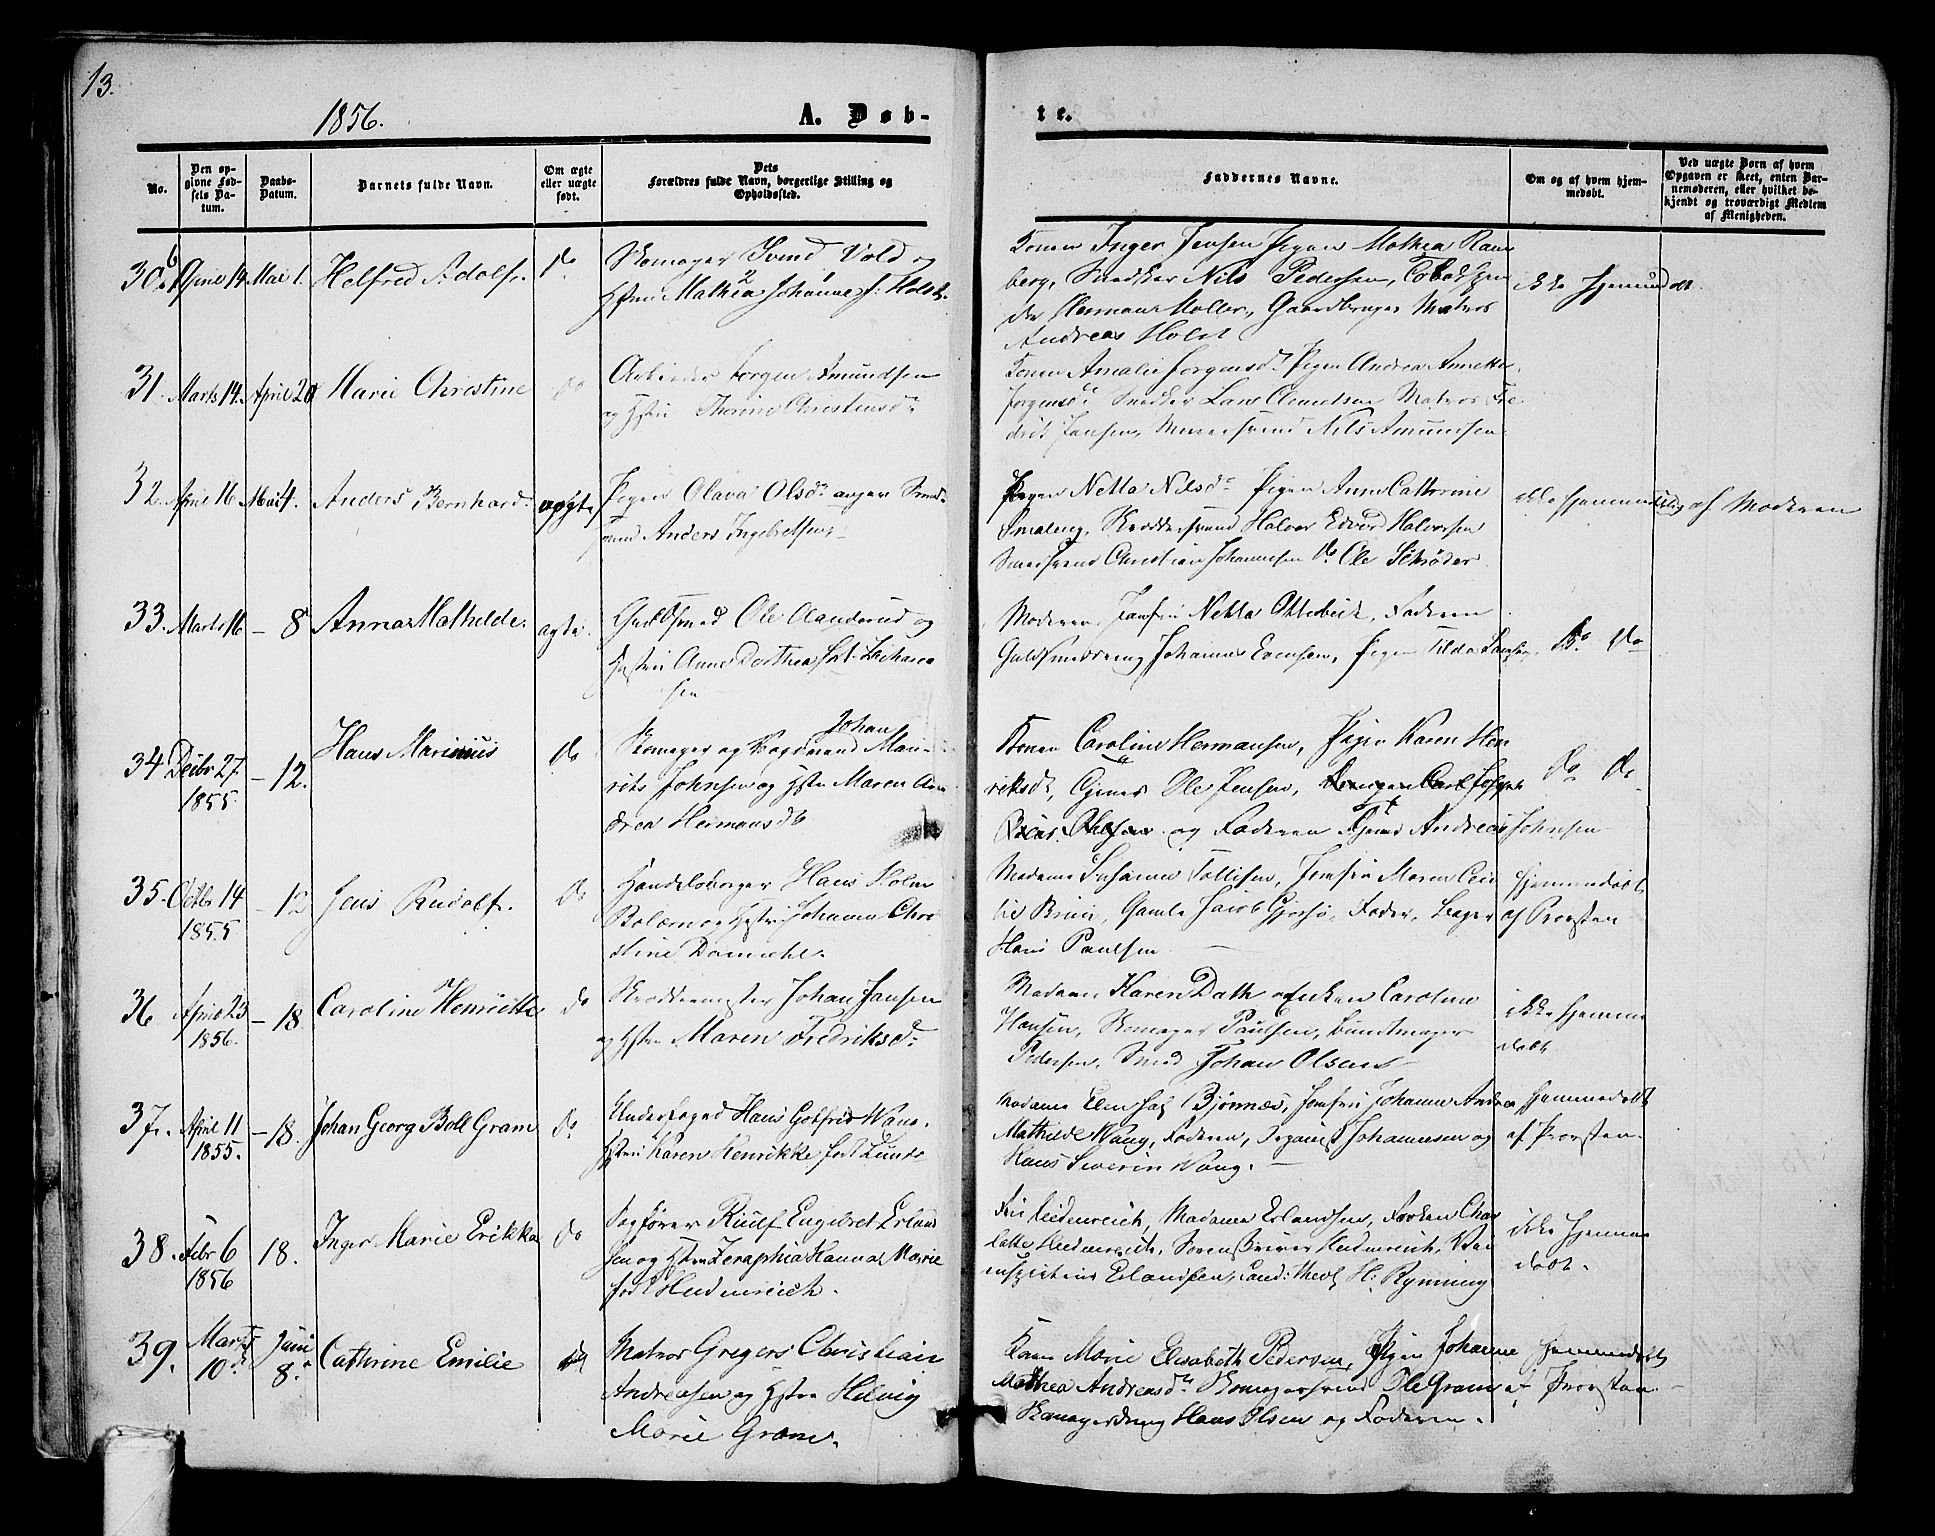 13.
1856.
A. Døb-
te.
No.
Den op-
givne Fød-
sels Da-
tum.
Daabs-
Datum.
Barnets fulde Navn.
Om ægte
eller uægte
født.
Dets
Forældres fulde Navn, borgerlige Stilling og
Opholdssted.
Faddernes Navne.
Om og af hvem hjem-
medøbt.
Ved uægte Børn af hvem
Opgaven er skeet, enten Bar-
nemoderen, eller hvilket be-
kjendt og troværdigt Medlem
af Menigheden.
30. April 14. Mai 1. Helfred Adolf. do
Skomager Svend Vold og
Hstru Mathea Johanne f: Holst.
Konen Inger Jensen Pigen Mathea Ram
berg, Snedker Nils Pedersen, Tobakspin
der Herman Møller, Gaardbruger Matros
Andreas Holst
ikke hjemmedøbt.
31. Marts 14. April 20 Marie Christine do
Arbeider Jørgen Amundsen
og Hstru Thorine Christensdr
Konen Amalie Jørgensdr Pigen Andrea Annette
Jørgensdr Snedker Lars Clemetsen Matros Fre
drik Jansen, Murersvend Nils Amundsen
32. April 16. Mai 4. Anders Bernhard. uægte
Pigen Olava Olsdr angiver Smed-
svend Anders Ingebretsen
Pigen Netta Nilsdr Pigen Anne Cathrine
Smaling, Skreddersvend Halvor Edvard Halvorsen
Smedsvend Christian Johannesen do Ole Schrøder
ikke hjemmedøbt
af Moderen
33. Marts 16 – 8 Anna Mathilde. ægte.
Guldsmed Ole Aanderud og
Hustru Anne Dorthea født Zacharia
sen
Moderen, Jomfru Netta Otterbeck, Faderen
Guldsmeddreng Johannes Evensen, Pigen Tilda Jansen,
do do
34 Decbr 27. 1855. – 12. Hans Marinius do
Skomager og Bogbinder Johan Mau-
rits Johnsen og Hstru Maren An
drea Hermansdr
Konen Caroline Hermansen, Pigen Karen Hen
riksdr, Ole Jensen,
og Faderen Andreas Johnsen
do do
35. Octbr 14 1855 – 12 Jens Rudolf. do
Handelsborger Hans Holm
og Hstru Johanne Chri
stine
Madame Susanne Tollisen, Jomfru Maren Ceci
lie Bruun, Gamle Jacob Fader, Bager
Hans Paulsen
hjemmedøbt
af Provsten
36 April 23 1856. – 18 Caroline Henriette do
Skreddermester Johan Jansen
og Hstru Maren Fredriksdr
Madame Karen Dath Enken Caroline
Hansen, Skomager Paulsen, Bundtmager
Pedersen, Smed Johan Olsen
ikke hjemme
døbt
37. April 11 1855. – 18. Johan Georg Boll Gram do
Underfoged Hans Gotfred Wang
Hstru Karen Henrikke født Lund
Madame Elen Bjønnes, Jomfru Johanne Andrea
Mathilde Wang, Faderen, Organist Johannesen og
Hans Severin Wang.
hjemmedøbt
af Provsten.
38. Febr 6 1856 18. Inger Marie Erikka do
Sagfører Rudolf Engelbret Erland
sen og Hstru Zeraphia Hanna Marie
født Heidenreich.
Fru Heidenreich, Madame Erlandsen, Frøken Char
lotte Heidenreich, Sorenskriver Heidenreich, Vei
inspecteur Erlandsen, Cand: theol H: Rynning
ikke hjemme
døbt.
39. Marts 10. Juni 8. Cathrine Emilie do
Matros Gregers Christian
Andreasen og Hstru Helvig
Marie Gram.
Konen Marie Elisabeth Pedersen, Pigen Johanne
Mathea Andreasdr Skomagersvend Ole Gram
Skomagerdreng Hans Olsen og Faderen.
hjemmedøbt
af Provsten